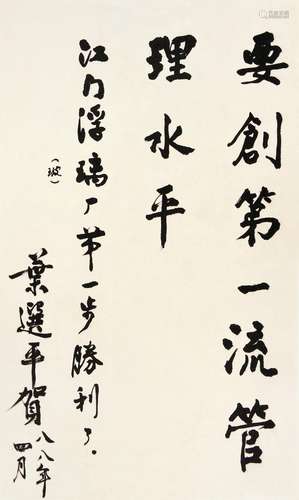 要創第一流管
理水平
江门浮璃厂第一步勝利了。
（玻）
葉選平賀
八八年
四月